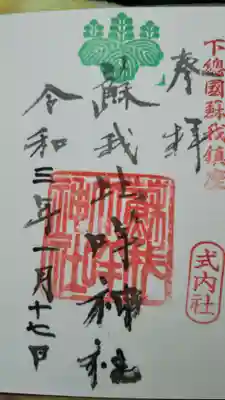 下總國蘇我鎮座
式内社
奉拝
蘇我比咩神社
蘇我比咩神社
令和三年一月十七日